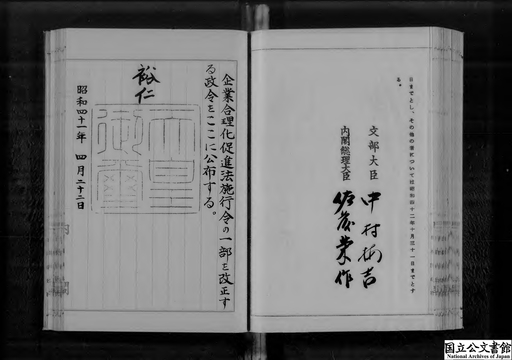 日までとし、その他の者については昭和四十二年十月三十一日までとす
る。
文部大臣 中村梅吉
内閣総理大臣 佐藤榮作
企業合理化促進法施行令の一部を改正す
る政令をここに公布する。
裕仁
天皇御璽
昭和四十一年 四月二十二日
国立公文書館
National Archives of Japan